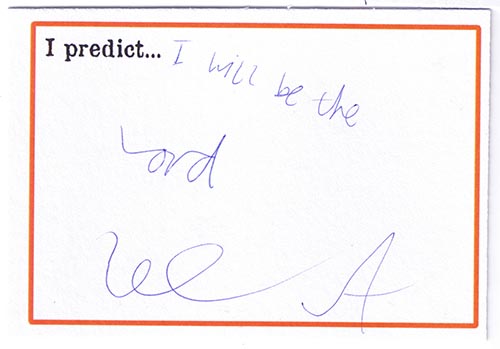 I predict... I will be the
Lord